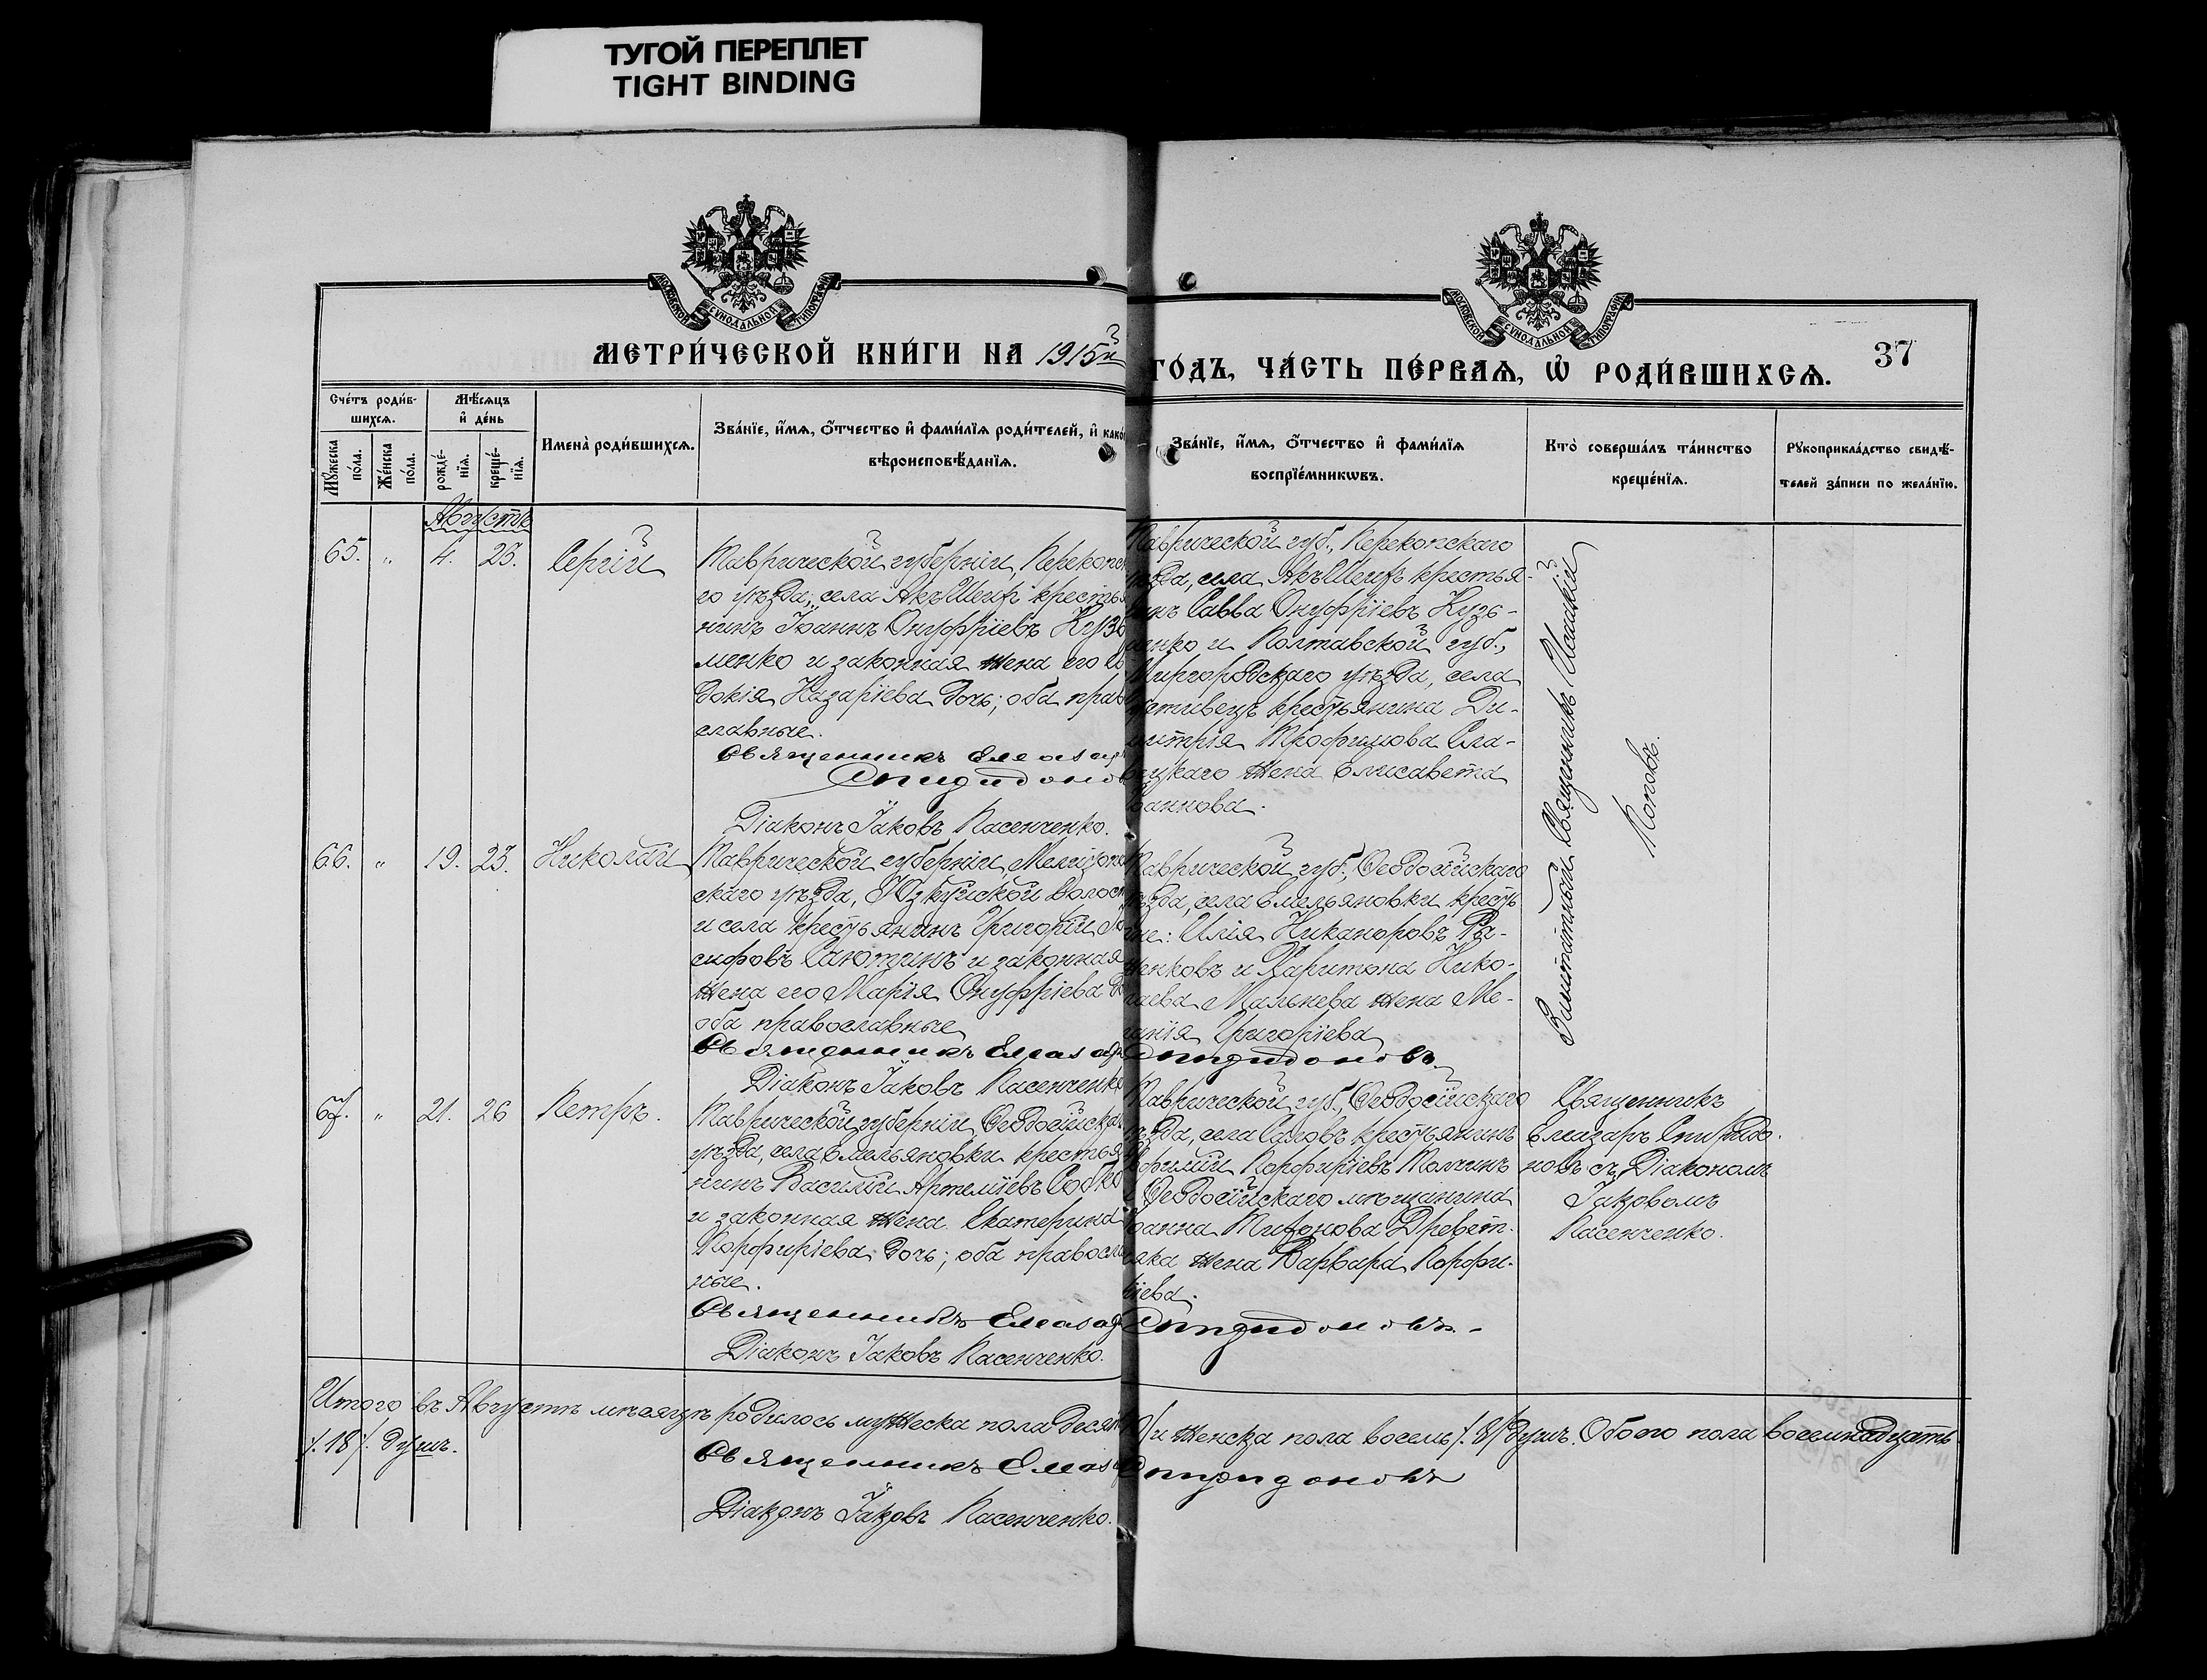 ТУГОЙ ПЕРЕПЛЕТ
TIGHT BINDING
МОСКОВСКОЙ СѴНОДАЛЬНОЙ ТИПОГРАФІИ
МОСКОВСКОЙ СѴНОДАЛЬНОЙ ТИПОГРАФІИ
МЕТРИ́ЧЕСКОЙ КНИ́ГИ НА 1915й
ГО́ДЪ, ЧА́СТЬ ПЕ́РВАЯ, Ѽ РОДИ́ВШИХСЯ.
37
Сче́тъ роди́в-
шихсѧ.
Мꙋ́жеска
по́ла.
Же́нска
по́ла.
Мѣ́сѧцъ
и҆ де́нь
рожде́-
нїѧ.
креще́-
нїѧ.
Имена̀ роди́вшихсѧ.
Зва́нїе, и҆́мѧ, ѻ҆́тчество и҆ фами́лїѧ роди́телей, и҆ како́
вѣроисповѣ́данїѧ.
Зва́нїе, и҆́мѧ, ѻ҆́тчество и҆ фами́лїѧ
воспрїе́мникѡвъ.
Кто̀ соверша́лъ та́инство
креще́нїѧ.
Рꙋкоприкла́дство свидѣ́-
телей за́писи по жела́нїю.
Августъ
65. „ 4. 23. Сергій
Таврической губерніи, Перекопс
го уѣзда, села Акъ Шеихъ крестья
нинъ Іоаннъ Онуфріевъ Кузь
менко и законная жена его Ев
докія Назаріева дочь; оба право
славные.
Священникъ Елеазар
Спиридонов
Діаконъ Іаковъ Пасенченко.
Таврической губ., Перекопскаго
уѣзда, села Акъ Шеихъ крестья-
нинъ Савва Онуфріевъ Кузь-
менко и Полтавской губ.,
Миргородскаго уѣзда, села
крестьянина Ди-
митрія Трофимова
жена Елисавета
Іоаннова.
Заштатный Священникъ Исаакій
Поповъ.
66. „ 19. 23. Николай
Таврической губерніи, Мелитопо
скаго уѣзда, Юзкуйской волост
и села крестьянинъ Григорій
сифовъ Сапотинъ и законная
жена его Марія Онуфріева
оба православные
Священникъ Елеазар
Діаконъ Іаковъ Пасенченко
Таврической губ., Ѳеодосійскаго
уѣзда, села Емельяновки кресть
не: Илія Никаноровъ
и Харитона Нико-
лаева Мальнева жена Ме-
ланія Григоріева
Спиридоновъ
67. „ 21. 26 Петръ.
Таврической губерніи Ѳеодосійскаго
уѣзда, села Емельяновки крестья
нинъ Василій Артеміевъ Собко
и законная жена Екатерина
Порфиріева дочь; оба правосла
ные.
Священникъ Елеазар
Діаконъ Іаковъ Пасенченко.
Таврической губ., Ѳеодосійскаго
уѣзда, села крестьянинъ
Порфиріевъ
и Ѳеодосійскаго мѣщанина
Іоанна Титонова Древет-
няка жена Варвара Порфи-
ріева.
Спиридоновъ.-
Священникъ
Елеазаръ Спиридо-
новъ съ Діакономъ
Іаковомъ
Пасенченко.
Итого въ Августѣ мѣсяцѣ родилось мужеска пола десят 10/ и женска пола восемь /.8/ душъ. Обоего пола восемнадцать
/.18/. душъ.
Священникъ Елеаз Спиридоновъ
Діаконъ Іаковъ Пасенченко.